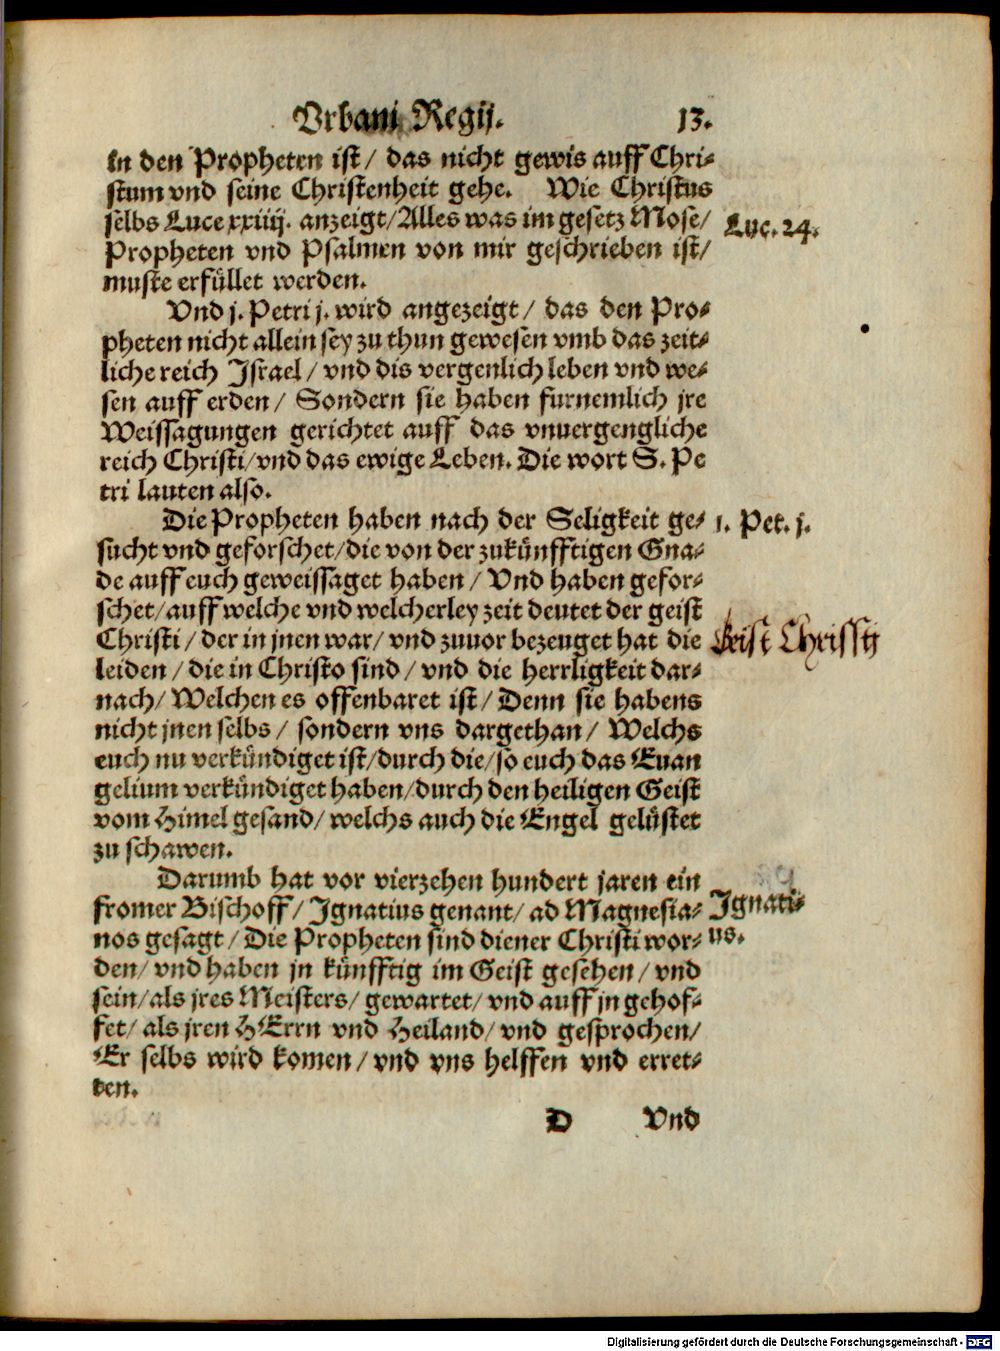 Vrbani Regij. 13.
in den Propheten ist/ das nicht gewis auff Chri-
stum vnd seine Christenheit gehe. Wie Christus
selbs Luce xxiiij. anzeigt/Alles was im gesetz Mose/
Luc. 24.
Propheten vnd Psalmen von mir geschrieben ist/
muste erfüllet werden.
Vnd j. Petri j. wird angezeigt/ das den Pro-
pheten nicht allein sey zu thun gewesen vmb das zeit-
liche reich Israel/ vnd dis vergenlich leben vnd we-
sen auff erden/ Sondern sie haben furnemlich jre
Weissagungen gerichtet auff das vnuergengliche
reich Christi/vnd das ewige Leben. Die wort S. Pe
tri lauten also.
Die Propheten haben nach der Seligkeit ge-
1. Pet. j.
sucht vnd geforschet/die von der zukünfftigen Gna-
de auff euch geweissaget haben/ Vnd haben gefor-
schet/auff welche vnd welcherley zeit deutet der geist
Christi/ der in jnen war/ vnd zuuor bezeuget hat die
Geist Christij
leiden/ die in Christo sind/ vnd die herrligkeit dar-
nach/ Welchen es offenbaret ist/ Denn sie habens
nicht jnen selbs/ sondern vns dargethan/ Welchs
euch nu verkündiget ist/durch die/so euch das Euan
gelium verkündiget haben/durch den heiligen Geist
vom Himel gesand/ welchs auch die Engel gelüstet
zu schawen.
Darumb hat vor vierzehen hundert jaren ein
fromer Bischoff/ Ignatius genant/ ad Magnesia-
Ignati-
nos gesagt/ Die Propheten sind diener Christi wor-
us.
den/ vnd haben jn künfftig im Geist gesehen/ vnd
sein/als jres Meisters/ gewartet/ vnd auff jn gehof-
fet/ als jren HErrn vnd Heiland/ vnd gesprochen/
Er selbs wird komen/ vnd vns helffen vnd erret-
ten.
D Vnd
Digitalisierung gefördert durch die Deutsche Forschungsgemeinschaft - DFG